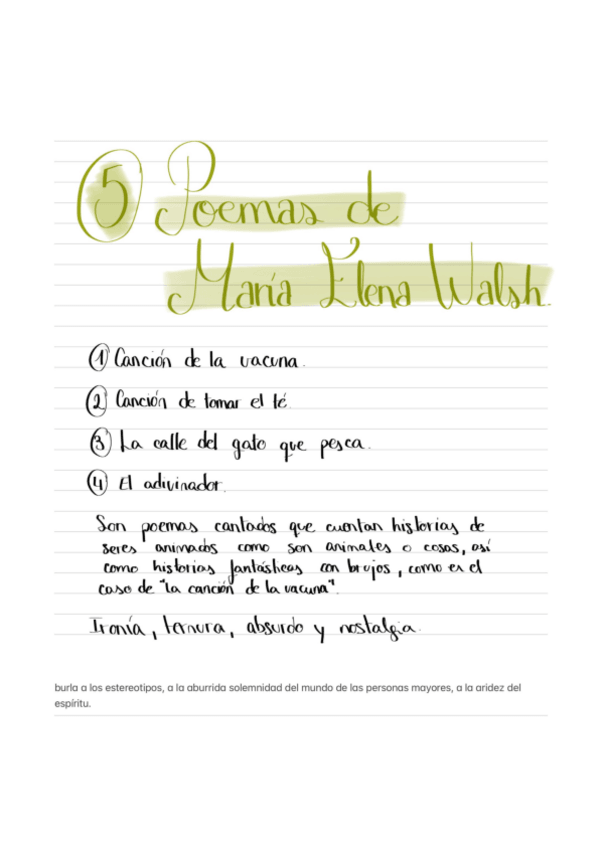 5 Poemas de
María Elena Walsh.
1 Canción de la vacuna.
2 Canción de tomar el té.
3 La calle del gato que pesca.
4 El adivinador.
Son poemas cantados que cuentan historias de
seres animados como son animales o cosas, así
como historias fantásticas con brujos, como es el
caso de "la canción de la vacuna".
Ironía, ternura, absurdo y nostalgia.
burla a los estereotipos, a la aburrida solemnidad del mundo de las personas mayores, a la aridez del
espíritu.